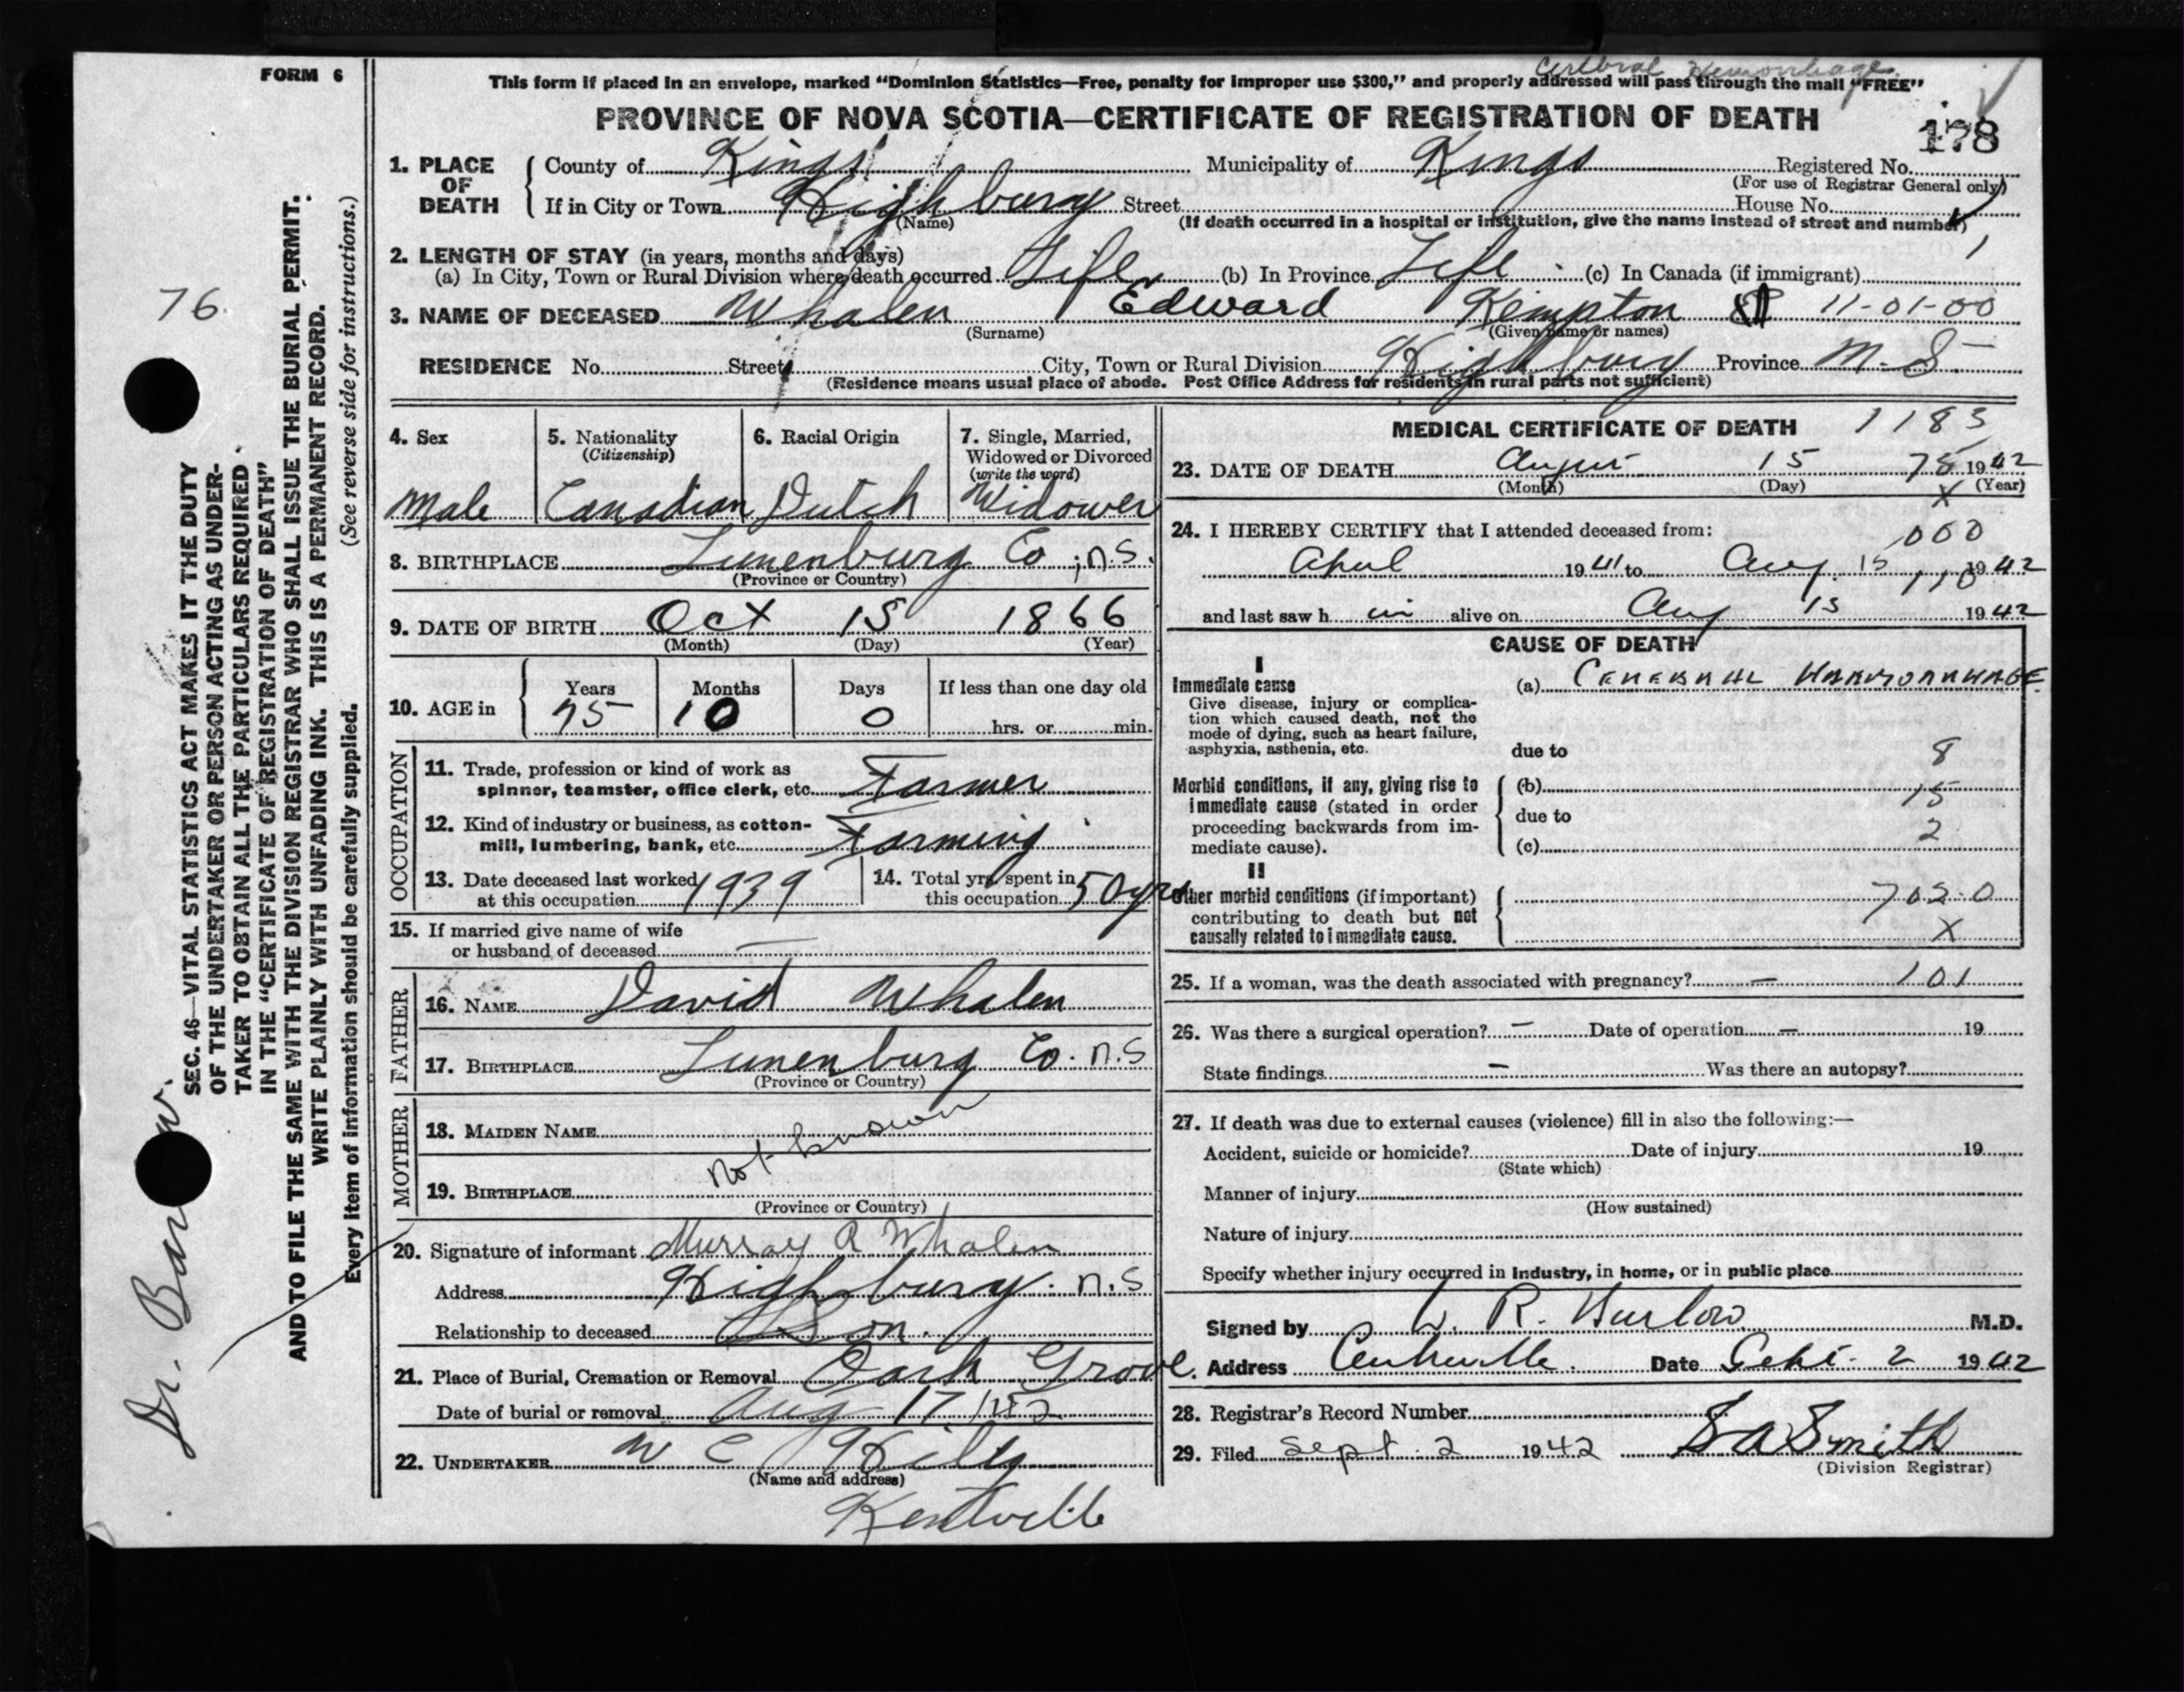 FORM 6
Cerebral Hemorrhage
This form if placed in an envelope, marked “Dominion Statistics—Free, penalty for improper use $300,” and properly addressed will pass through the mail “FREE”
PROVINCE OF NOVA SCOTIA—CERTIFICATE OF REGISTRATION OF DEATH
178
1. PLACE OF DEATH
County of Kings Municipality of Kings Registered No.
(For use of Registrar General only)
If in City or Town Highbury Street House No.
(Name) (If death occurred in a hospital or institution, give the name instead of street and number)
2. LENGTH OF STAY (in years, months and days)
(a) In City, Town or Rural Division where death occurred Life (b) In Province Life (c) In Canada (if immigrant)
3. NAME OF DECEASED Whalen Edward Kempton 11-01-00
(Surname) (Given name or names)
RESIDENCE No. Street City, Town or Rural Division Highbury Province N.S.
(Residence means usual place of abode. Post Office Address for residents in rural parts not sufficient)
4. Sex
Male
5. Nationality
(Citizenship)
Canadian
6. Racial Origin
Dutch
7. Single, Married,
Widowed or Divorced
(write the word)
Widower
8. BIRTHPLACE Lunenburg Co; N.S.
(Province or Country)
9. DATE OF BIRTH Oct 15 1866
(Month) (Day) (Year)
10. AGE in
Years Months Days If less than one day old
75 10 0 hrs. or min.
OCCUPATION
11. Trade, profession or kind of work as
spinner, teamster, office clerk, etc. Farmer
12. Kind of industry or business, as cotton-
mill, lumbering, bank, etc. Farming
13. Date deceased last worked
at this occupation 1939
14. Total yrs spent in
this occupation 50 yrs
15. If married give name of wife
or husband of deceased —
FATHER
16. NAME David Whalen
17. BIRTHPLACE Lunenburg Co. N.S
(Province or Country)
MOTHER
18. MAIDEN NAME
Not known
19. BIRTHPLACE
(Province or Country)
20. Signature of informant Murray R Whalen
Address Highbury. N.S
Relationship to deceased Son.
21. Place of Burial, Cremation or Removal Oark Grove.
Date of burial or removal Aug 17
22. UNDERTAKER W C
(Name and address)
Kentville
MEDICAL CERTIFICATE OF DEATH 1183
23. DATE OF DEATH August 15 75 1942
(Month) (Day) (Year)
X
24. I HEREBY CERTIFY that I attended deceased from:
000
April 1941 to Aug. 15 1942
110
and last saw h im alive on Aug 15 1942
CAUSE OF DEATH
I
Immediate cause
Give disease, injury or complica-
tion which caused death, not the
mode of dying, such as heart failure,
asphyxia, asthenia, etc.
(a) CEREBRAL HAEMORRHAGE
due to 8
Morbid conditions, if any, giving rise to
immediate cause (stated in order
proceeding backwards from im-
mediate cause).
(b) 15
due to
2
(c)
II
Other morbid conditions (if important)
contributing to death but not
causally related to immediate cause.
702-0
X
25. If a woman, was the death associated with pregnancy? — 101
26. Was there a surgical operation? — Date of operation — 19
State findings — Was there an autopsy?
27. If death was due to external causes (violence) fill in also the following:—
Accident, suicide or homicide? Date of injury 19
(State which)
Manner of injury
(How sustained)
Nature of injury
Specify whether injury occurred in industry, in home, or in public place
Signed by R. Barlow M.D.
Address Centreville. Date Sept. 2 1942
28. Registrar's Record Number
29. Filed Sept. 2 1942 Smith
(Division Registrar)
76
SEC. 46—VITAL STATISTICS ACT MAKES IT THE DUTY
OF THE UNDERTAKER OR PERSON ACTING AS UNDER-
TAKER TO OBTAIN ALL THE PARTICULARS REQUIRED
IN THE “CERTIFICATE OF REGISTRATION OF DEATH”
AND TO FILE THE SAME WITH THE DIVISION REGISTRAR WHO SHALL ISSUE THE BURIAL PERMIT.
WRITE PLAINLY WITH UNFADING INK. THIS IS A PERMANENT RECORD.
Every item of information should be carefully supplied. (See reverse side for instructions.)
Dr. Barlow.